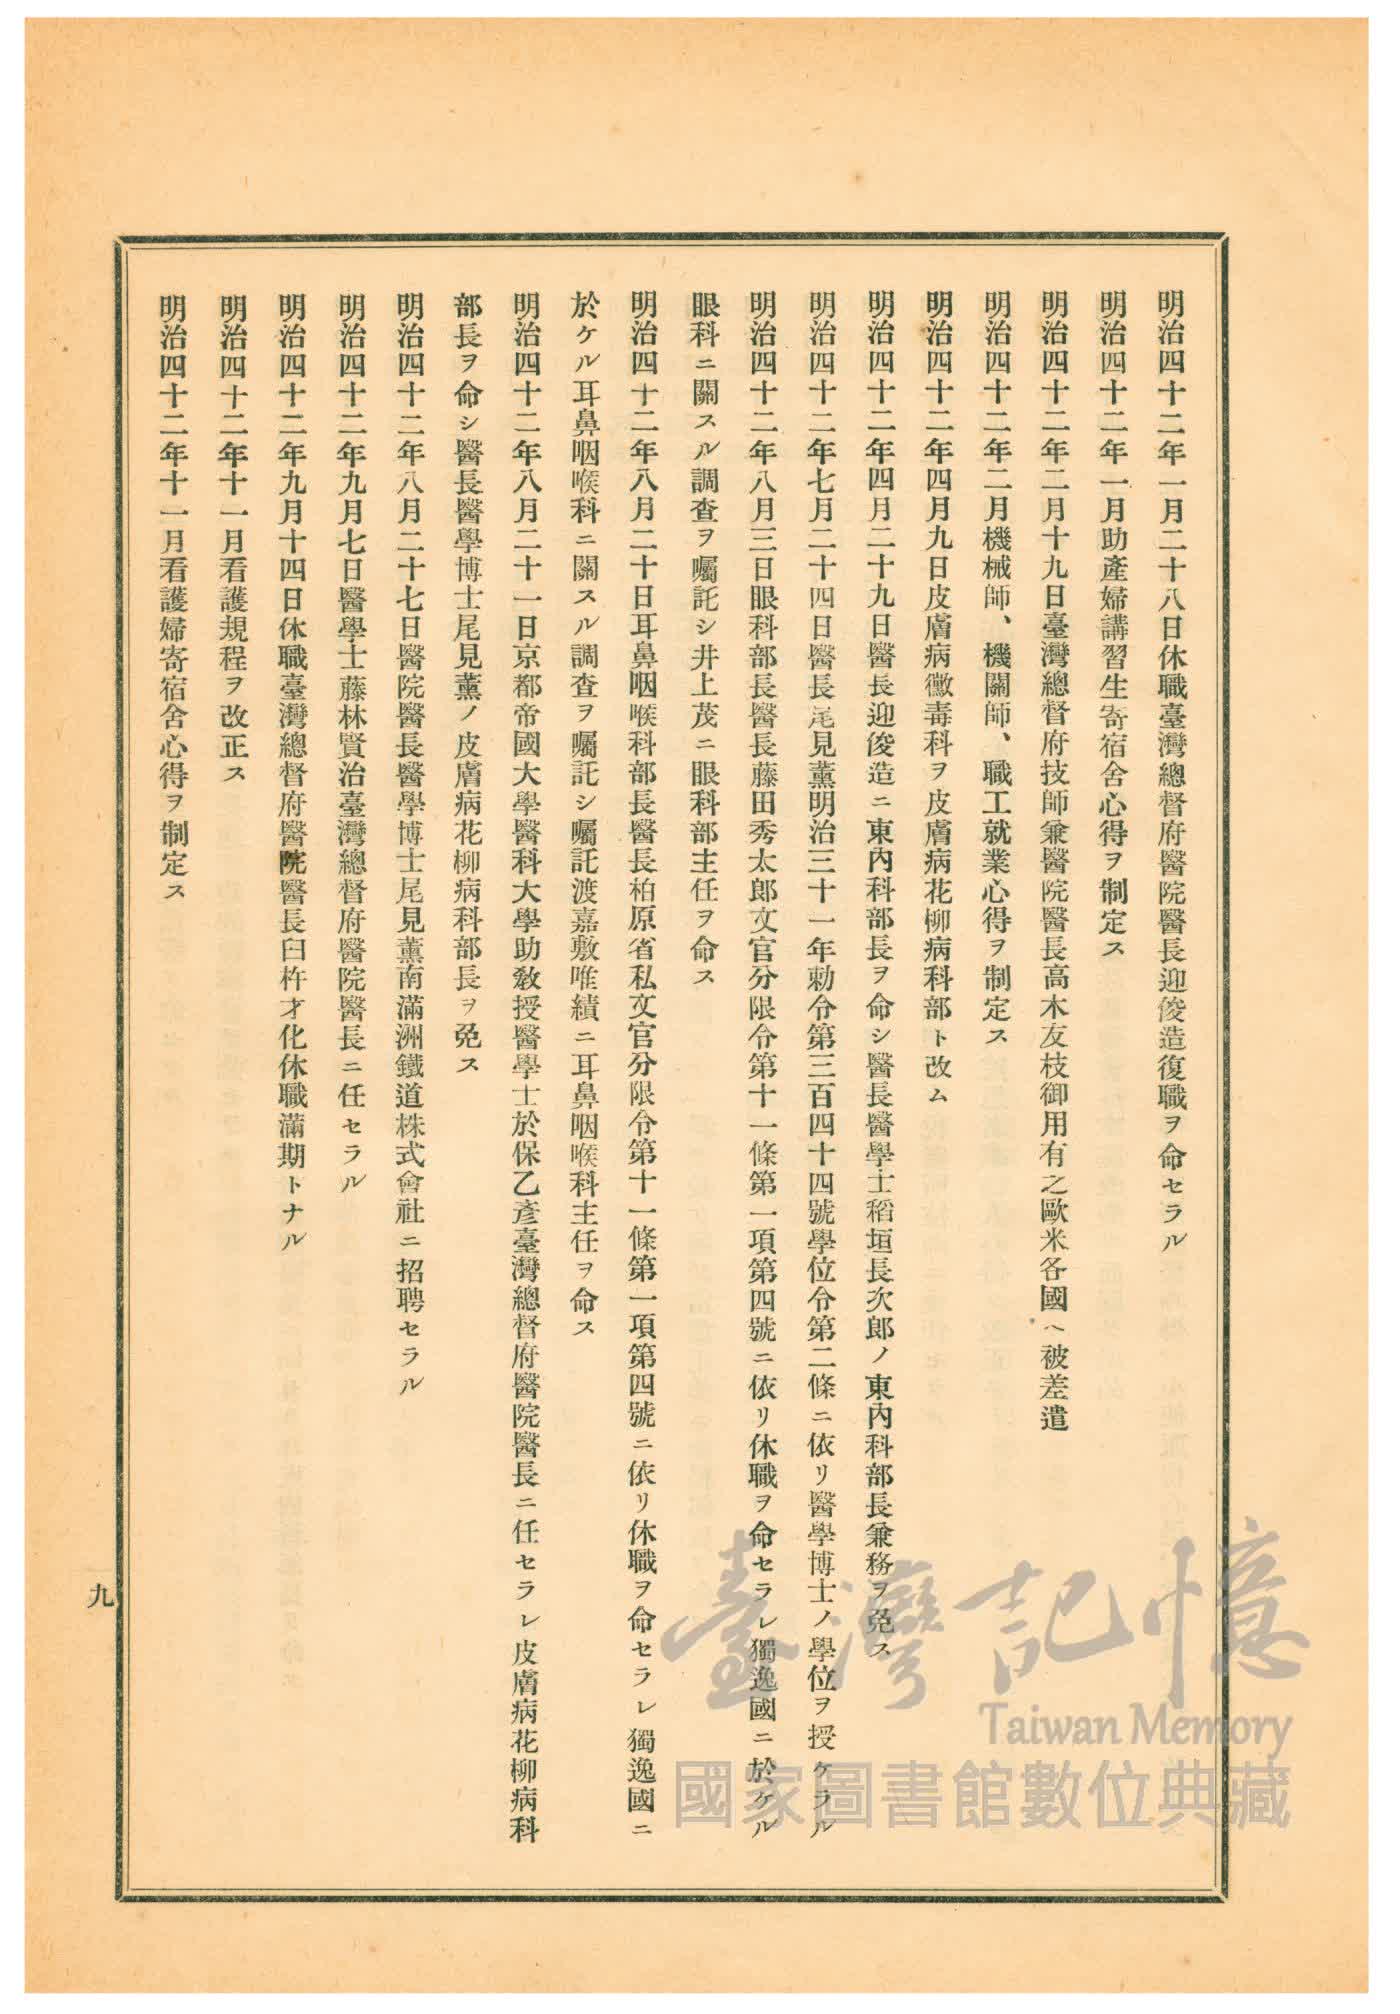 明治四十二年一月二十八日休職臺灣總督府醫院醫長迎俊造復職ヲ命セラル
明治四十二年一月助產婦講習生寄宿舍心得ヲ制定ス
明治四十二年二月十九日臺灣總督府技師兼醫院醫長高木友枝御用有之歐米各國ヘ被差遣
明治四十二年二月機械師、機關師、職工就業心得ヲ制定ス
明治四十二年四月九日皮膚病黴毒科ヲ皮膚病花柳病科部ト改ム
明治四十二年四月二十九日醫長迎俊造ニ東內科部長ヲ命シ醫長醫學士稻垣長次郎ノ東內科部長兼務ヲ免ス
明治四十二年七月二十四日醫長尾見薰明治三十一年勅令第三百四十四號學位令第二條ニ依リ醫學博士ノ學位ヲ授ケラル
明治四十二年八月三日眼科部長醫長藤田秀太郎文官分限令第十一條第一項第四號ニ依リ休職ヲ命セラレ獨逸國ニ於ケル
眼科ニ關スル調查ヲ囑託シ井上茂ニ眼科部主任ヲ命ス
明治四十二年八月二十日耳鼻咽喉科部長醫長柏原省私文官分限令第十一條第一項第四號ニ依リ休職ヲ命セラレ獨逸國ニ
於ケル耳鼻咽喉科ニ關スル調查ヲ囑託シ囑託渡嘉敷唯績ニ耳鼻咽喉科主任ヲ命ス
明治四十二年八月二十一日京都帝國大學醫科大學助敎授醫學士於保乙彥臺灣總督府醫院醫長ニ任セラレ皮膚病花柳病科
部長ヲ命シ醫長醫學博士尾見薰ノ皮膚病花柳病科部長ヲ免ス
明治四十二年八月二十七日醫院醫長醫學博士尾見薰南滿洲鐵道株式會社ニ招聘セラル
明治四十二年九月七日醫學士藤林賢治臺灣總督府醫院醫長ニ任セラル
明治四十二年九月十四日休職臺灣總督府醫院醫長臼杵才化休職滿期トナル
明治四十二年十一月看護規程ヲ改正ス
明治四十二年十一月看護婦寄宿舍心得ヲ制定ス
九
臺灣記憶
Taiwan Memory
國家圖書館數位典藏